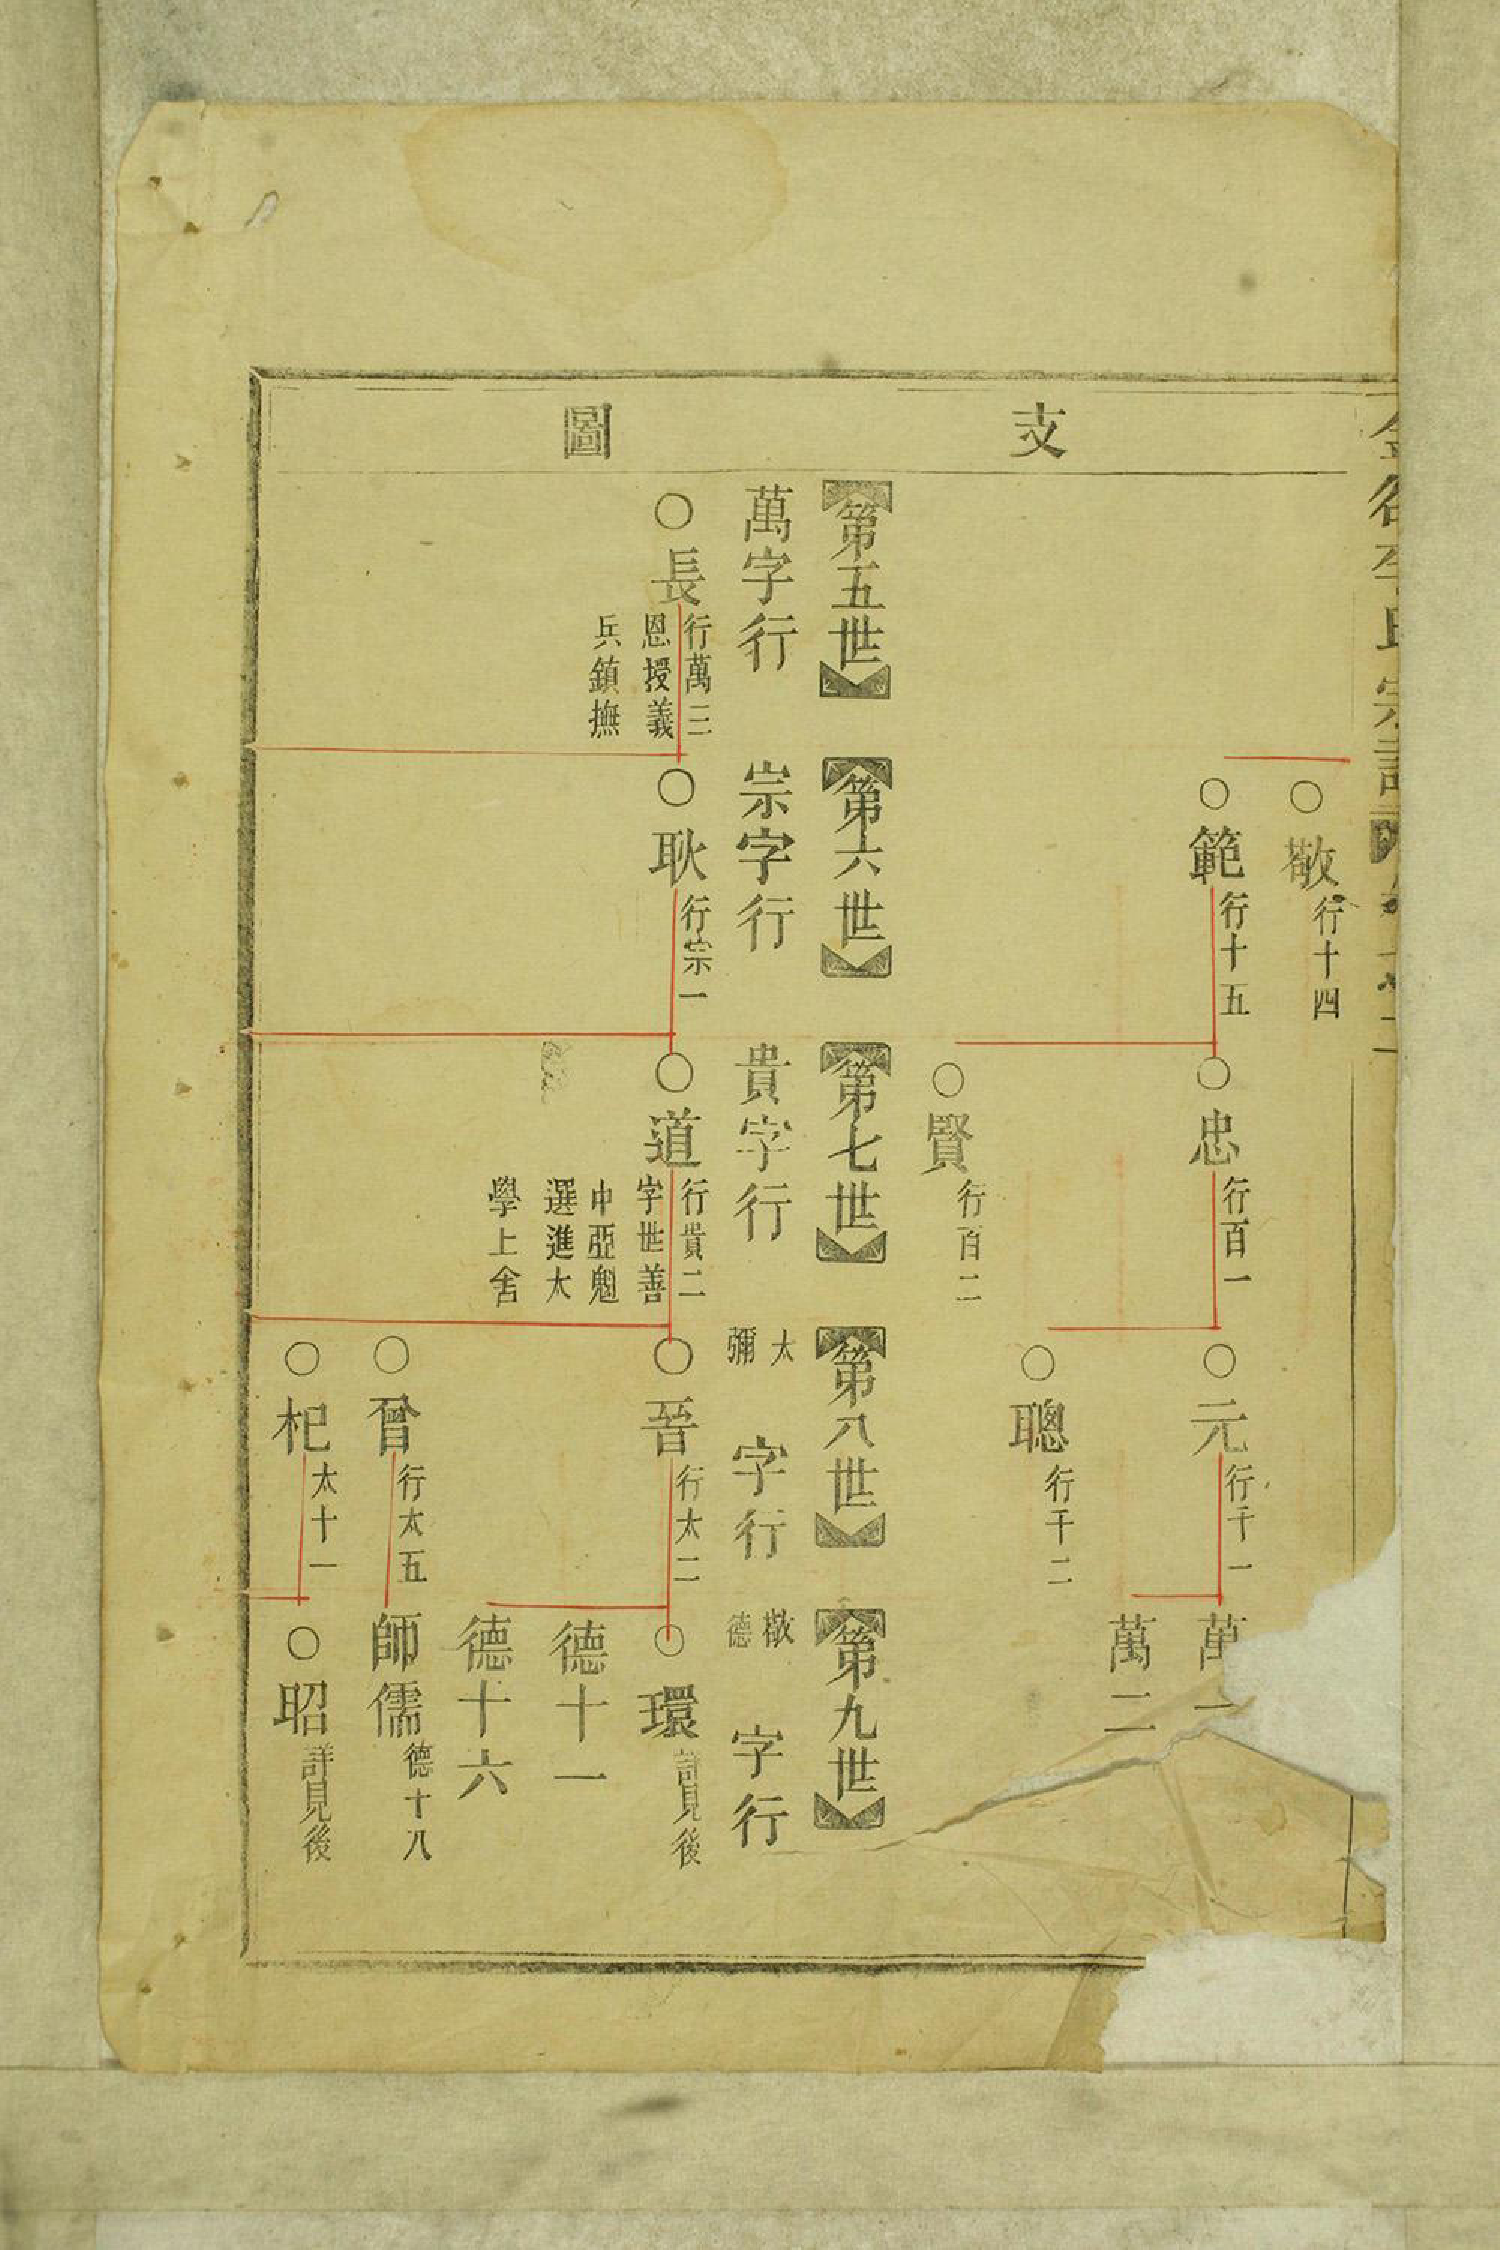 支圖
敬行十四
範行十五
忠行百一
元行千一
萬一
聰行千二
萬二
賢行百二
第五世
第六世
第七世
第八世
第九世
萬字行
宗字行
貴字行
太彌字行
敬德字行
長行萬三恩授義兵鎮撫
耿行宗一
道行貴二字世善中亞魁選進太學上舍
晉行太二
環詳見後
德十一
德十六
曾行太五
師儒德十八
杞太十一
昭詳見後